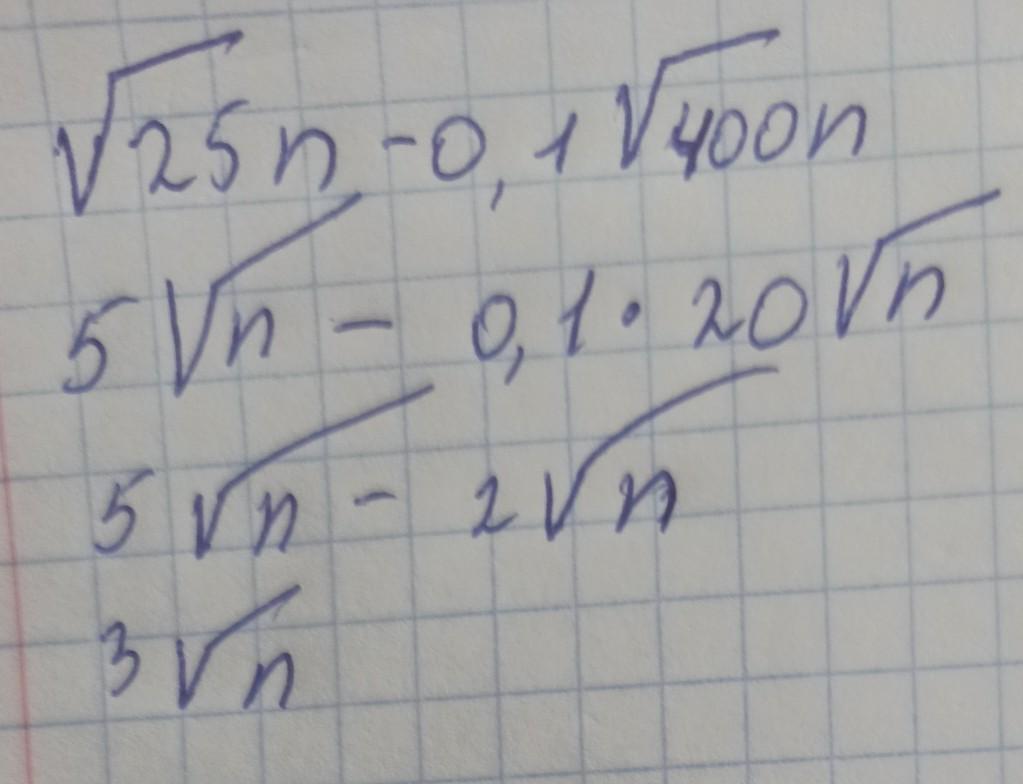 √25n - 0,1 √400n
5 √n - 0,1 · 20 √n
5 √n - 2 √n
3 √n